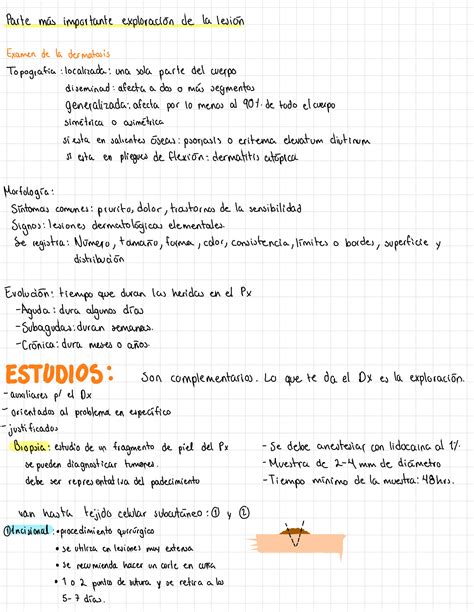 Parte más importante exploración de la lesión
Examen de la dermatosis
Topografía: localizada: una sola parte del cuerpo
diseminad: afecta a dos o más segmentos
generalizada: afecta por lo menos al 90% de todo el cuerpo
simétrica o asimétrica
si esta en salientes óseas: psoriasis o eritema elevatum diutinum
si esta en pliegues de flexión: dermatitis atópica
Morfología:
Síntomas comunes: prurito, dolor, trastornos de la sensibilidad
Signos: lesiones dermatológicas elementales
Se registra: Número, tamaño, forma, color, consistencia, límites o bordes, superficie y
distribución
Evolución: tiempo que duran las heridas en el Px
-Aguda: dura algunos días
-Subagudas: duran semanas.
-Crónica: dura meses o años.
ESTUDIOS: Son complementarios. Lo que te da el Dx es la exploración.
-auxiliares p/ el Dx
-orientados al problema en específico
-justificados
Biopsia: estudio de un fragmento de piel del Px
se pueden diagnosticar tumores.
debe ser representativa del padecimiento
- Se debe anestesiar con lidocaína al 1%.
-Muestra de 2-4 mm de diámetro
-Tiempo mínimo de la muestra: 48hrs.
van hasta tejido celular subcutáneo: ① y ②
①Incisional: •procedimiento quirúrgico
• se utiliza en lesiones muy extensa
• se recomienda hacer un corte en cuña
• 1 o 2 puntos de sutura y se retira a los
5-7 días.